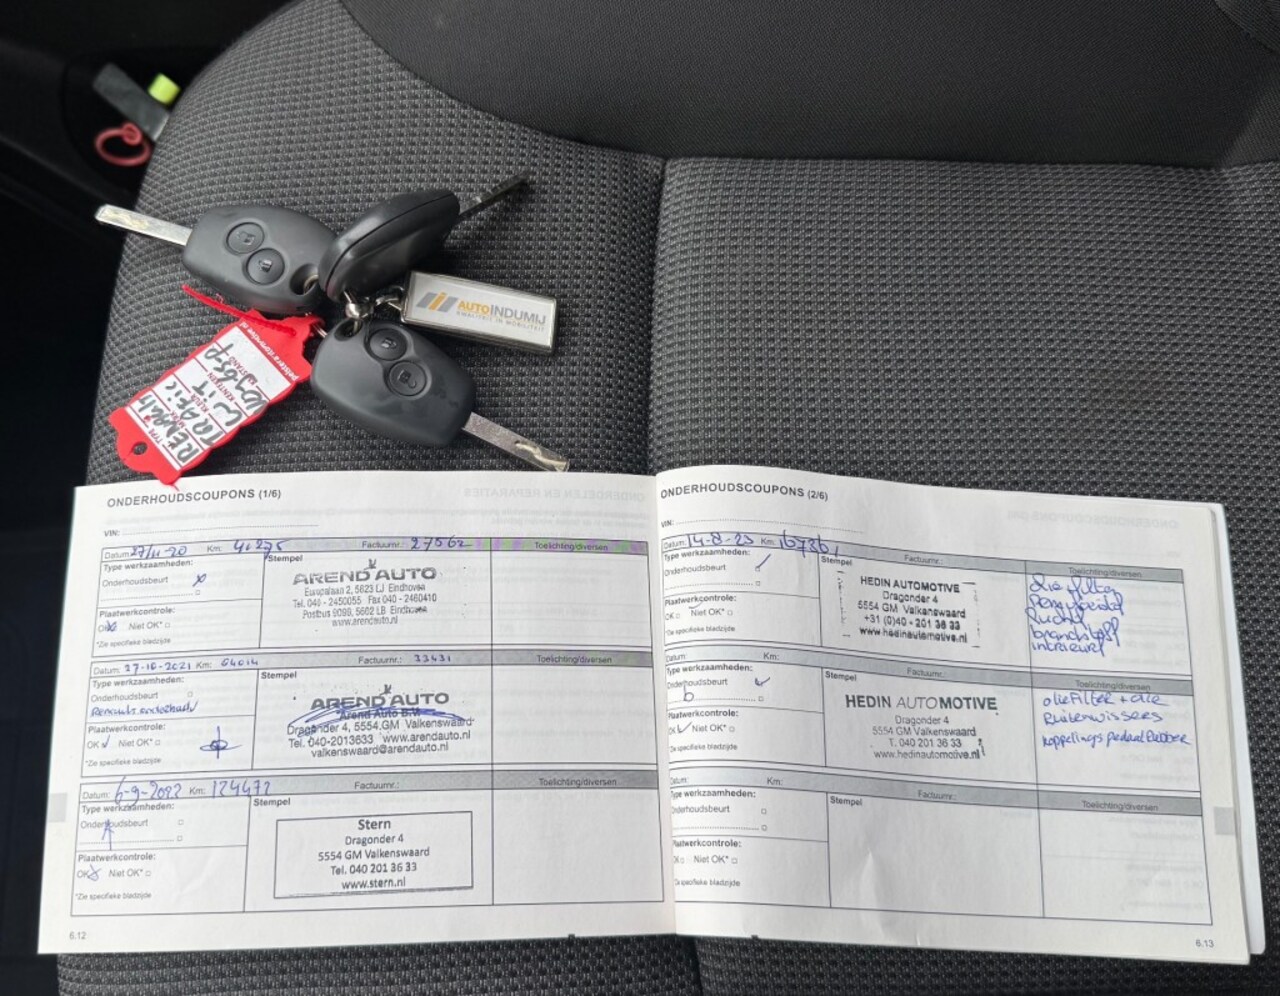 AUTOINDUMIJ
KWALITEIT IN MOBILITEIT
RENAULT
TRAFIC
WIT
ONDERHOUDSCOUPONS (1/6)
VIN:
Datum: 27/11-20 Km: 41275 Factuurnr.: 27562 Toelichting/diversen
Type werkzaamheden:
Onderhoudsbeurt x
Plaatwerkcontrole:
OK x Niet OK*
*Zie specifieke bladzijde
Stempel
AREND AUTO
Europalaan 2, 5623 LJ Eindhoven
Tel. 040 - 2450055 Fax 040 - 2460410
Postbus 9098, 5602 LB Eindhoven
www.arendauto.nl
Datum: 27-10-2021 Km: 64014 Factuurnr.: 33431 Toelichting/diversen
Type werkzaamheden:
Onderhoudsbeurt
Renault onderhoud
Plaatwerkcontrole:
OK Niet OK*
*Zie specifieke bladzijde
Stempel
AREND AUTO
Arend Auto B.V.
Dragonder 4, 5554 GM Valkenswaard
Tel. 040-2013633 www.arendauto.nl
valkenswaard@arendauto.nl
Datum: 6-9-2022 Km: 124472 Factuurnr.: Toelichting/diversen
Type werkzaamheden:
Onderhoudsbeurt
Plaatwerkcontrole:
OK x Niet OK*
*Zie specifieke bladzijde
Stempel
Stern
Dragonder 4
5554 GM Valkenswaard
Tel. 040 201 36 33
www.stern.nl
6.12
ONDERHOUDSCOUPONS (2/6)
VIN:
Datum: 14-8-23 Km: 167361 Factuurnr.: Toelichting/diversen
Type werkzaamheden:
Onderhoudsbeurt
Plaatwerkcontrole:
OK Niet OK*
*Zie specifieke bladzijde
Stempel
HEDIN AUTOMOTIVE
Dragonder 4
5554 GM Valkenswaard
+31 (0)40 - 201 36 33
www.hedinautomotive.nl
brandstoff
interieur
Datum: Km: Factuurnr.: Toelichting/diversen
Type werkzaamheden:
Onderhoudsbeurt
b
Plaatwerkcontrole:
OK Niet OK*
*Zie specifieke bladzijde
Stempel
HEDIN AUTOMOTIVE
Dragonder 4
5554 GM Valkenswaard
T. 040 201 36 33
www.hedinautomotive.nl
olie Filter + olie
Ruitenwissers
koppelings pedaal Rubber
Datum: Km: Factuurnr.: Toelichting/diversen
Type werkzaamheden:
Onderhoudsbeurt
Plaatwerkcontrole:
OK Niet OK*
*Zie specifieke bladzijde
Stempel
6.13